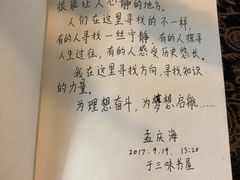 很能让人心静的地方。
人们在这里寻找的不一样，
有的人寻找一丝宁静，有的人探寻
人生过往，有的人感受历史悠长。
我在这里寻找方向，寻找知识
的力量。
为理想奋斗，为梦想启航……
孟庆海
2017.9.19. 13:20
于三味书屋